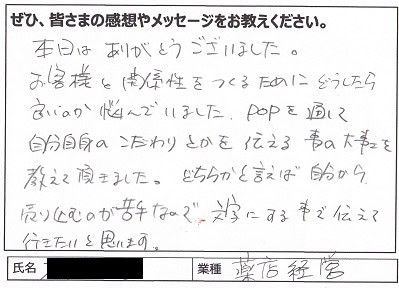 ぜひ、皆さまの感想やメッセージをお教えください。
本日は ありがとうございました。
お客様と関係性をつくるためにどうしたら
良いのか悩んでいました。POPを通して
自分自身のこだわりとかを伝える事の大事を
教えて頂きました。どちらかと言えば自分から
売り込むのが苦手なので、文字にする事で伝えて
行きたいと思います。
氏名 業種 薬店経営